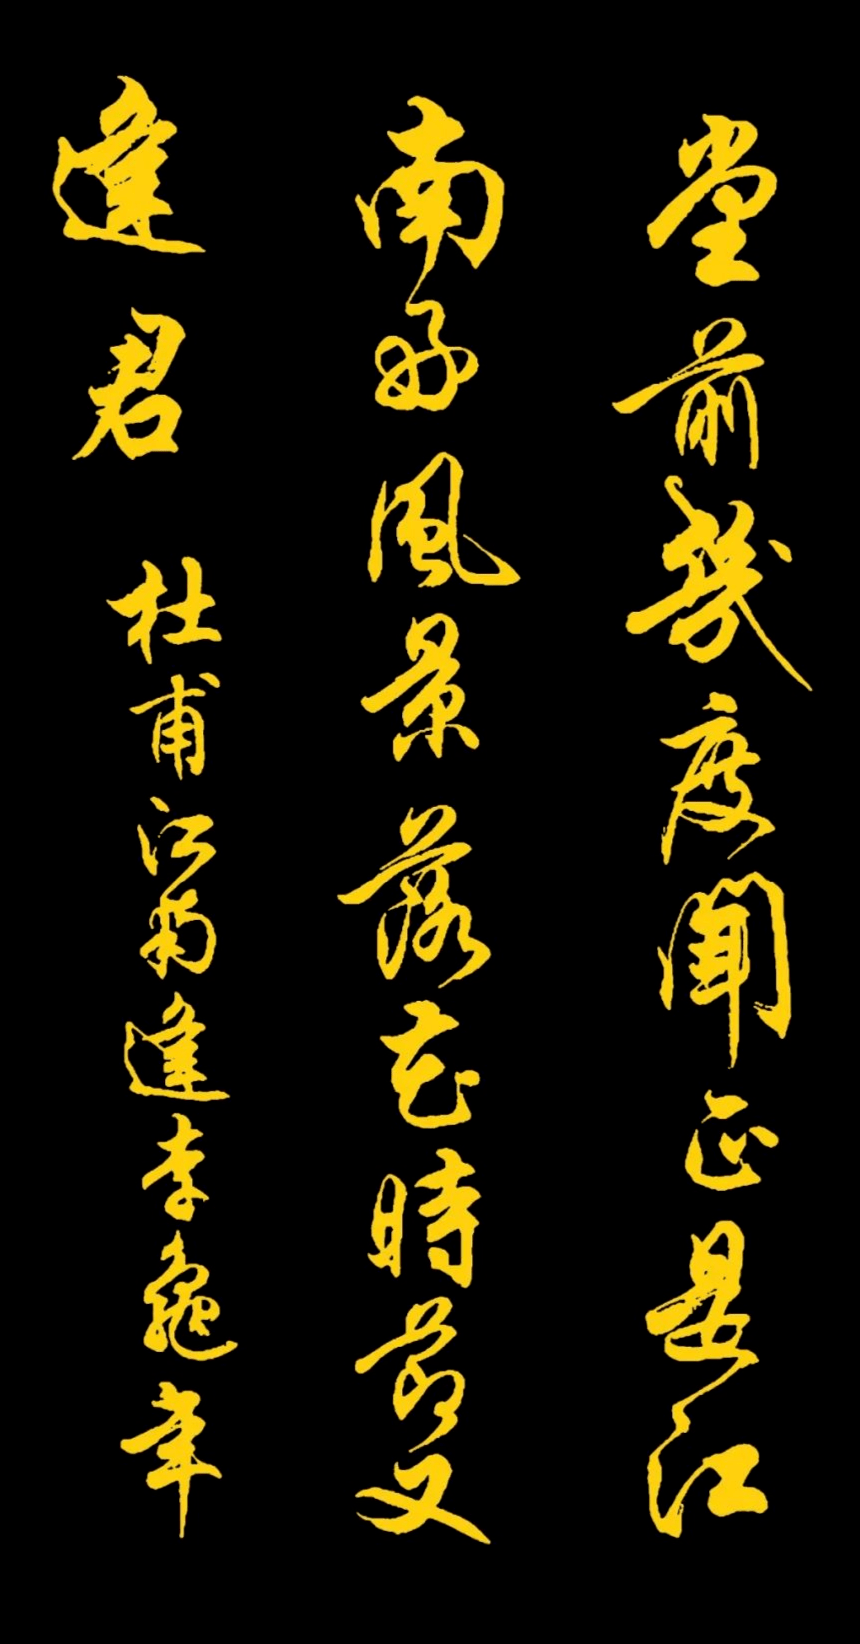 堂前幾度聞正是江
南好風景落花時節又
逢君 杜甫江南逢李龜年